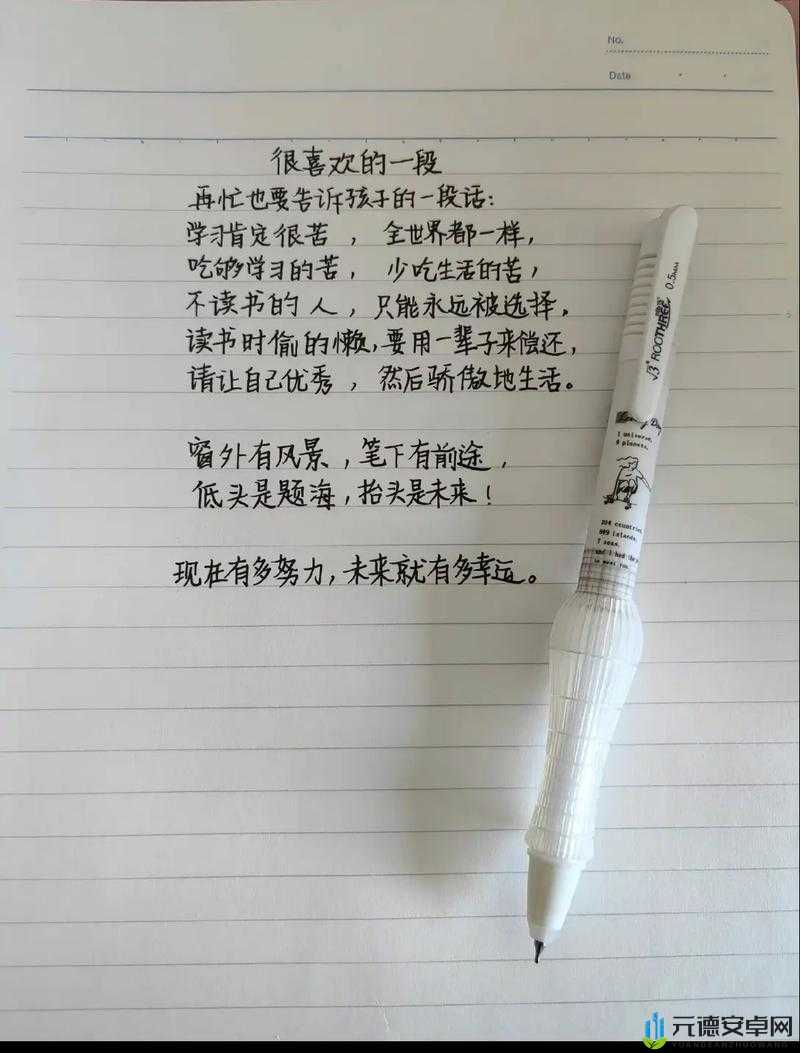 No.
Date
很喜欢的一段
再忙也要告诉孩子的一段话：
学习肯定很苦 ， 全世界都一样，
吃够学习的苦， 少吃生活的苦，
不读书的人，只能永远被选择，
读书时偷的懒，要用一辈子来偿还，
请让自己优秀 ， 然后骄傲地生活。
窗外有风景，笔下有前途，
低头是题海，抬头是未来！
现在有多努力，未来就有多幸运。
√3 ROOTHREE 0.5MM
1 universe,
8 planets,
204 countries,
809 islands,
7 seas,
元德安卓网
YUANDEANZHUOWANG